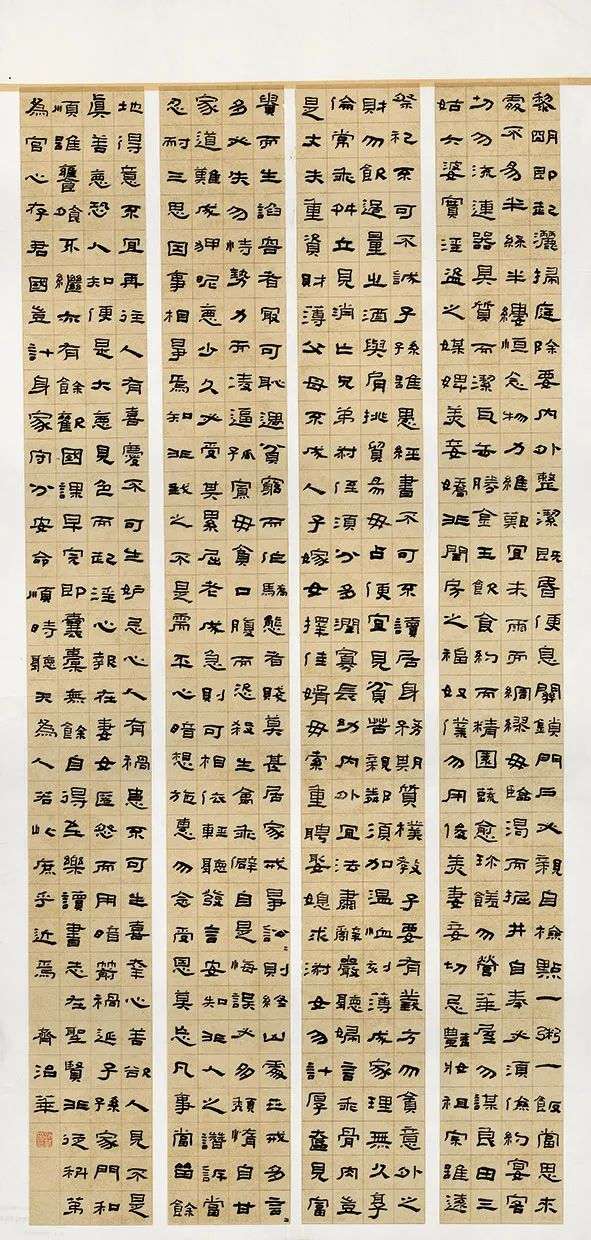 黎明即起灑掃庭除要內外整潔既昏便息關鎖門戶必親自檢點一粥一飯當思來
處不易半絲半縷恒念物力維艱宜未雨而綢繆毋臨渴而掘井自奉必須儉約宴客
切勿流連器具質而潔瓦缶勝金玉飲食約而精園蔬愈珍饈勿營華屋勿謀良田三
姑六婆實淫盜之媒婢美妾嬌非閨房之福奴僕勿用俊美妻妾切忌豔妝祖宗雖遠
祭祀不可不誠子孫雖愚經書不可不讀居身務期質樸教子要有義方勿貪意外之
財勿飲過量之酒與肩挑貿易毋占便宜見貧苦親鄰須加溫恤刻薄成家理無久享
倫常乖舛立見消亡兄弟叔侄須分多潤寡長幼內外宜法肅辭嚴聽婦言乖骨肉豈
是丈夫重資財薄父母不成人子嫁女擇佳婿毋索重聘娶媳求淑女勿計厚奩見富
貴而生諂容者最可恥遇貧窮而作驕態者賤莫甚居家戒爭訟〻則終凶處世戒多言〻
多必失勿恃勢力而凌逼孤寡毋貪口腹而恣殺生禽乖僻自是悔誤必多頹惰自甘
家道難成狎昵惡少久必受其累屈老成急則可相依輕聽發言安知非人之譖訴當
忍耐三思因事相爭焉知非我之不是需平心暗想施惠勿念受恩莫忘凡事當留餘
地得意不宜再往人有喜慶不可生妒忌心人有禍患不可生喜幸心善欲人見不是
真善惡恐人知便是大惡見色而起淫心報在妻女匿怨而用暗箭禍延子孫家門和
順雖饔飧不繼亦有餘歡國課早完即囊橐無餘自得至樂讀書志在聖賢非徒科第
為官心存君國豈計身家守分安命順時聽天為人若此庶乎近焉 齊 華